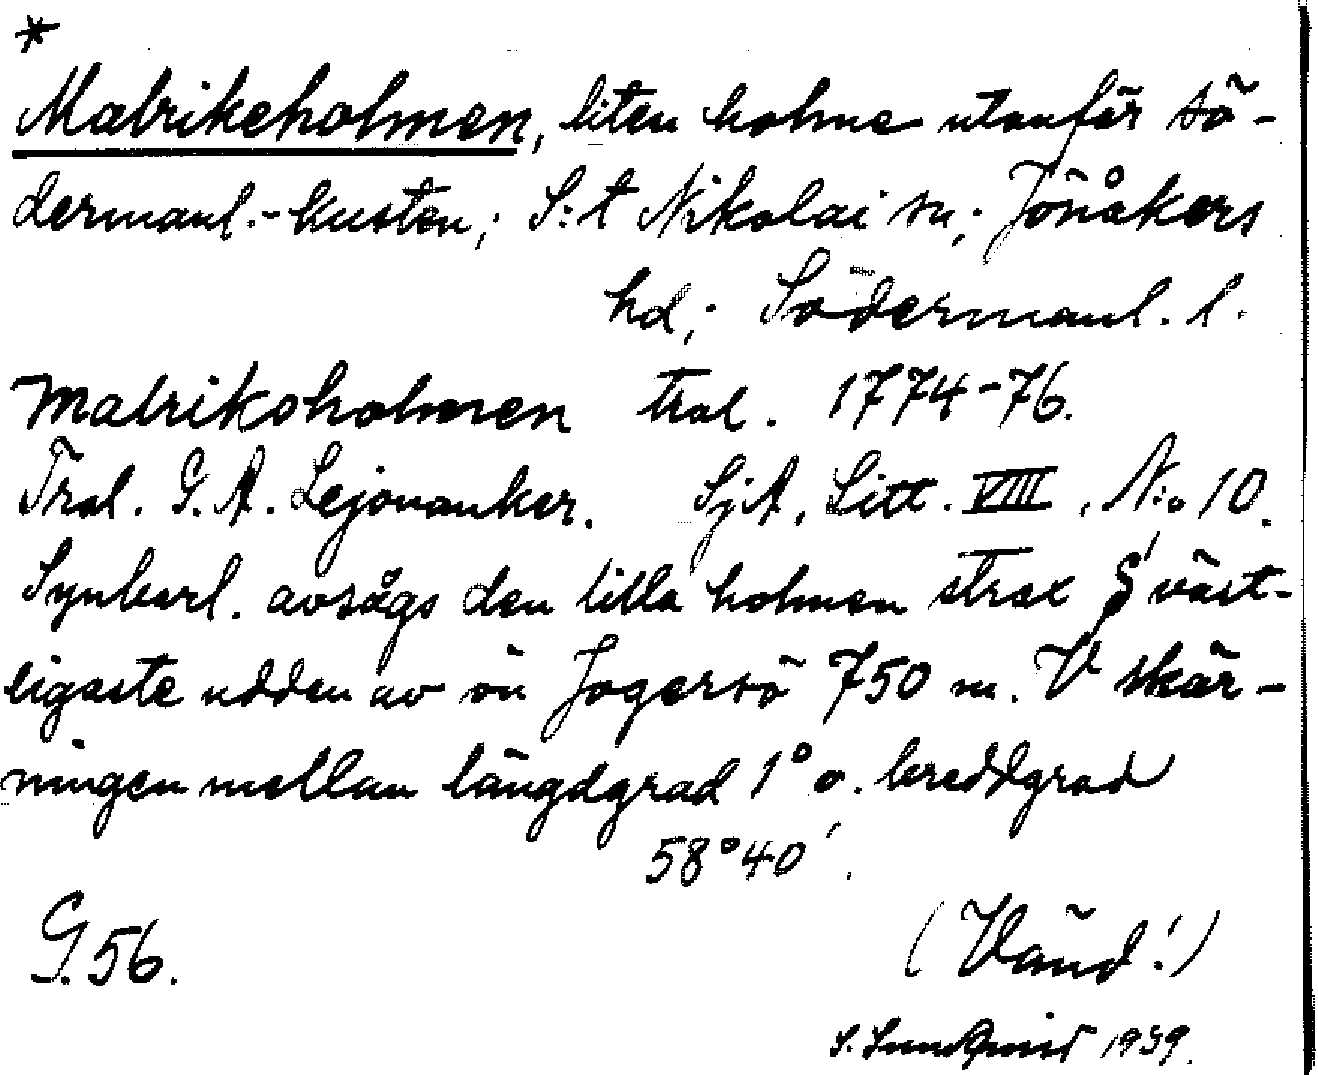 *
Malrikeholmen, liten holme utanför sö-
dermanl.-kusten; S:t Nikolai sn; Jönåkers
hd; Södermanl. l.
Malrikoholmen tral. 1774-76.
Tral. G. A. Lejonanker. SjA, Litt. VIII, N:o 10.
Synbarl. avsågs den lilla holmen strax S väst-
ligaste udden av ön Jogersö 750 m. V skär-
ningen mellan längdgrad 1° o. breddgrad
58°40'.
G. 56.
(Vänd!)
S. Sundqvist 1939.